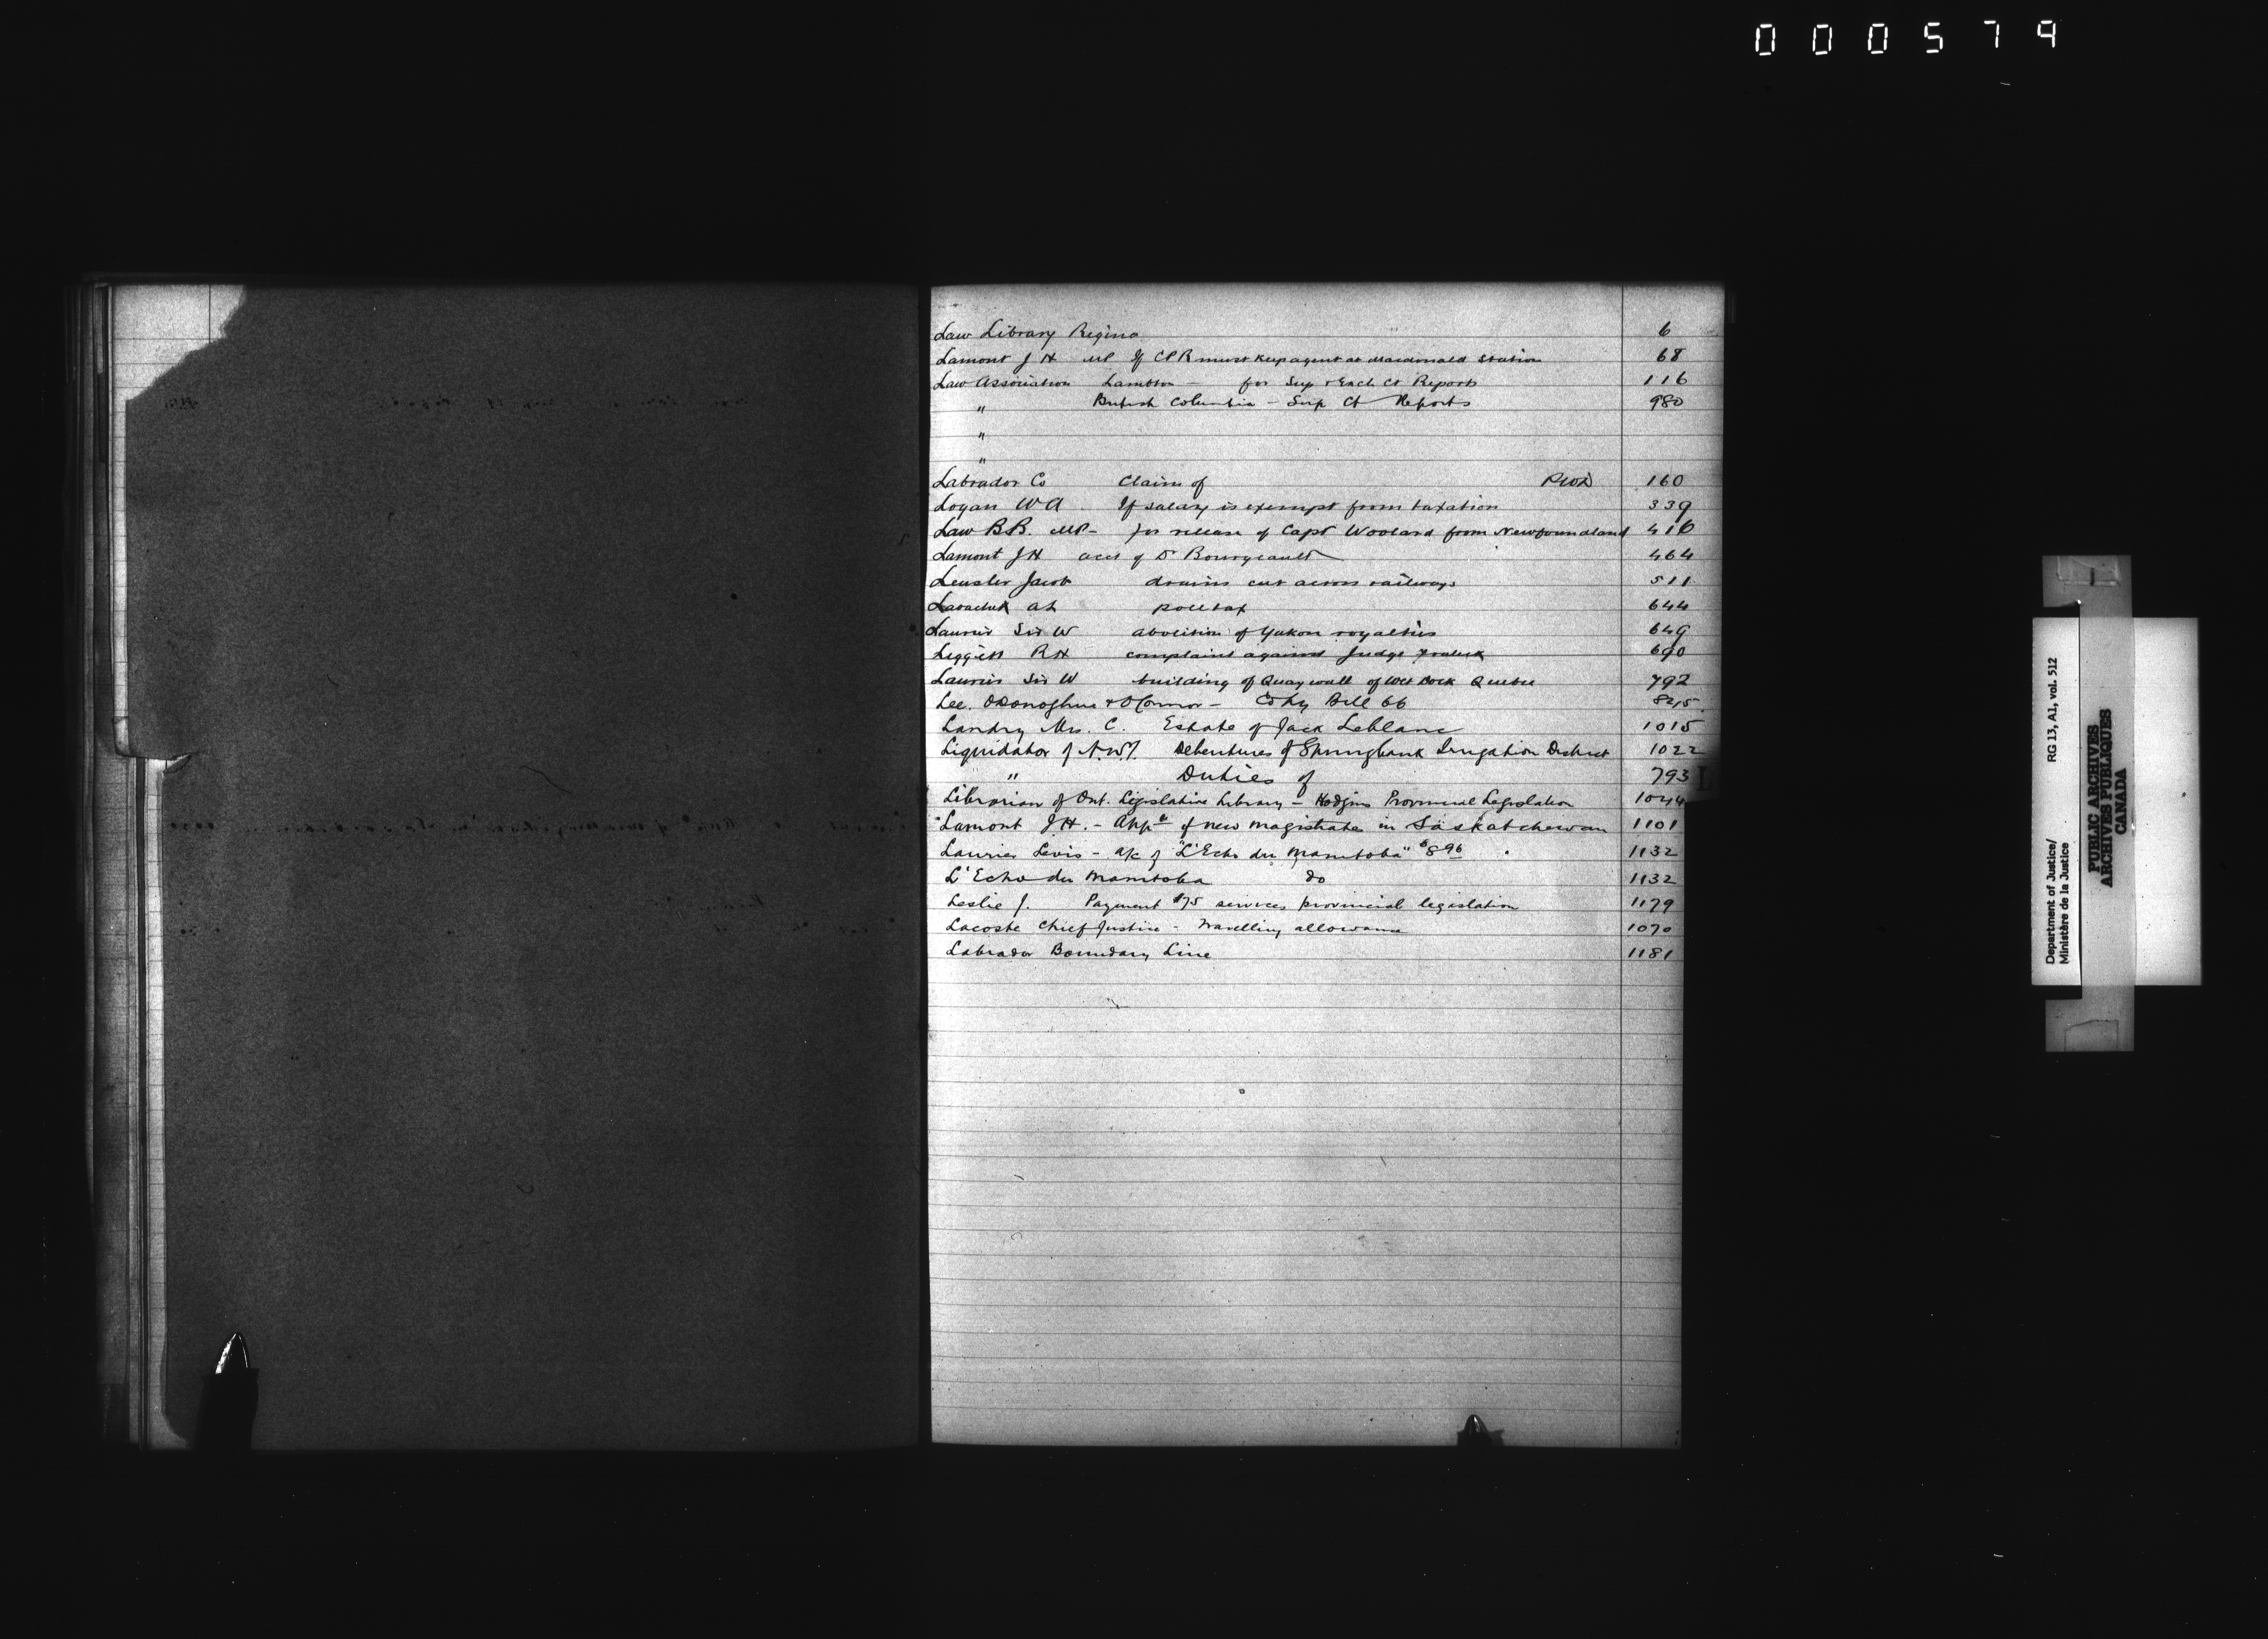 000579
Law Library Regina 6
Lamont J H MP If CPR must keep agent at Macdonald Station 68
Law Association Lambton — for Sup & Exch Ct Reports 116
" British Columbia — Sup Ct Reports 980
"
"
Labrador Co Claim of PWD 160
Logan W A If salary is exempt from taxation 339
Law B.B. MP — for release of Capt Woolard from Newfoundland 416
Lamont J H acct of Dr Bourgeault 464
Jacob drains cut across railways 511
at poll tax 644
Laurier Sir W abolition of Yukon royalties 649
Leggett R H complaint against Judge 690
Laurier Sir W building of Quay wall of Wet Dock Quebec 792
Lee. O'Donoghue & O'Connor — Copy Bill 66 845
Landry Mrs. C. Estate of Jack Leblanc 1015
Liquidator of N.W.T. Debentures of Springbank Irrigation District 1022
" Duties of 793
L
Librarian of Ont. Legislative Library — Hodgins Provincial Legislation 1044
Lamont J.H. — Appt of new magistrates in Saskatchewan 1101
Laurier Levis — a/c of "L'Echo du Manitoba" $8.96 1132
L'Echo du Manitoba do 1132
Leslie J. Payment $75 services provincial legislation 1179
Lacoste Chief Justice — Travelling allowance 1070
Labrador Boundary Line 1181
Department of Justice/
Ministère de la Justice
RG 13, A1, vol. 512
PUBLIC ARCHIVES
ARCHIVES PUBLIQUES
CANADA